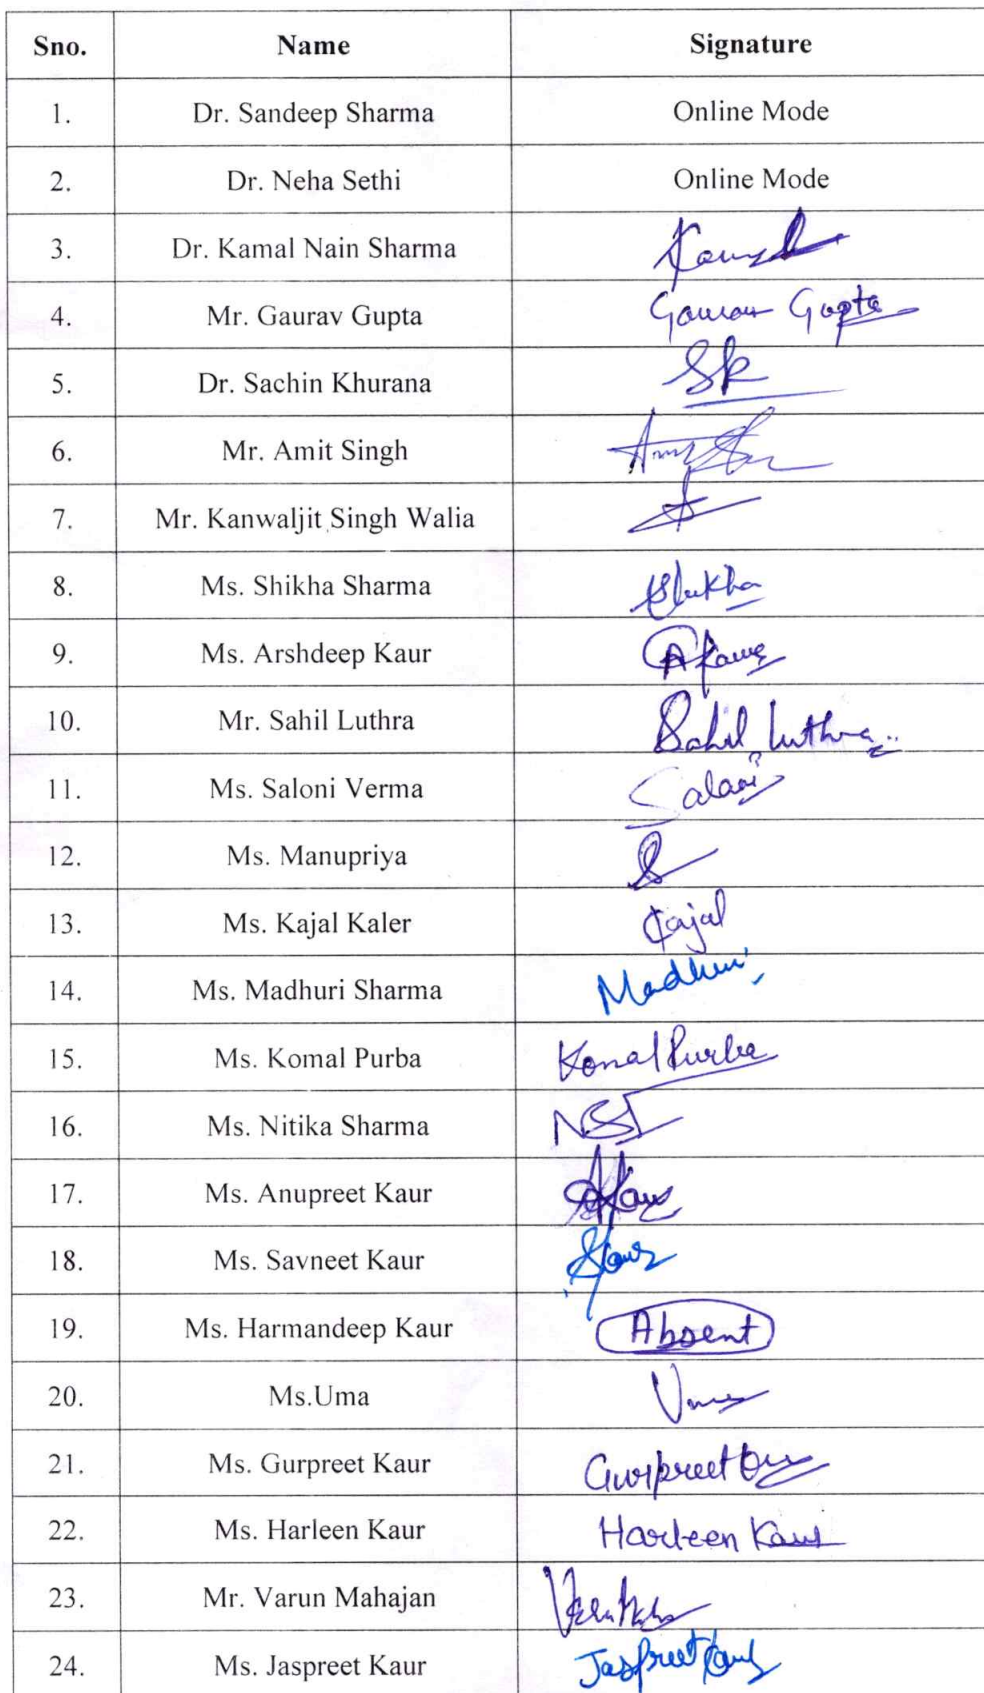 Sno. Name Signature
1. Dr. Sandeep Sharma Online Mode
2. Dr. Neha Sethi Online Mode
3. Dr. Kamal Nain Sharma
4. Mr. Gaurav Gupta Gaurav Gupta
5. Dr. Sachin Khurana SK
6. Mr. Amit Singh
7. Mr. Kanwaljit Singh Walia
8. Ms. Shikha Sharma Shikha
9. Ms. Arshdeep Kaur A Kaur
10. Mr. Sahil Luthra Sahil Luthra
11. Ms. Saloni Verma Saloni
12. Ms. Manupriya
13. Ms. Kajal Kaler Kajal
14. Ms. Madhuri Sharma Madhuri
15. Ms. Komal Purba Komal Purba
16. Ms. Nitika Sharma
17. Ms. Anupreet Kaur
18. Ms. Savneet Kaur
19. Ms. Harmandeep Kaur Absent
20. Ms.Uma Uma
21. Ms. Gurpreet Kaur Gurpreet Kaur
22. Ms. Harleen Kaur Harleen Kaur
23. Mr. Varun Mahajan
24. Ms. Jaspreet Kaur Jaspreet Kaur